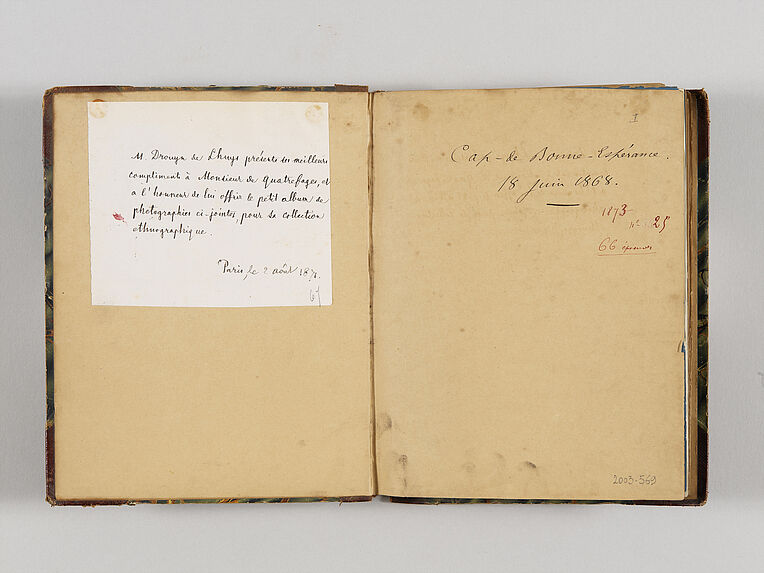 M. Drouyn de Lhuys présente ses meilleurs
compliments à Monsieur de Quatrefages, et
a l'honneur de lui offrir le petit album de
photographies ci-jointes, pour sa collection
ethnographique.
Paris, le 2 août
I
Cap-de Bonne-Espérance.
18 juin 1868.
1873
n° 25
66 épreuves
2003-569